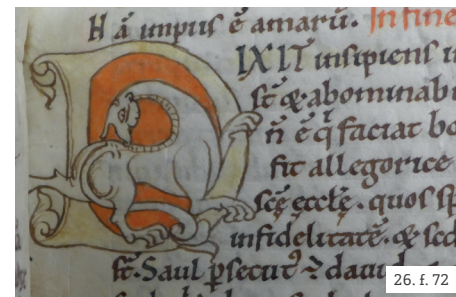 H ā impiis ē amarū. In fine
DIXIT insipiens in
st̄ & abominabi
n̄ ē q̇ faciat bo
fit allegorice
scę ecclę. quos sp
infidelitatē. & sed
st̄. Saul ꝑsecut᷒ ē dauid
26. f. 72